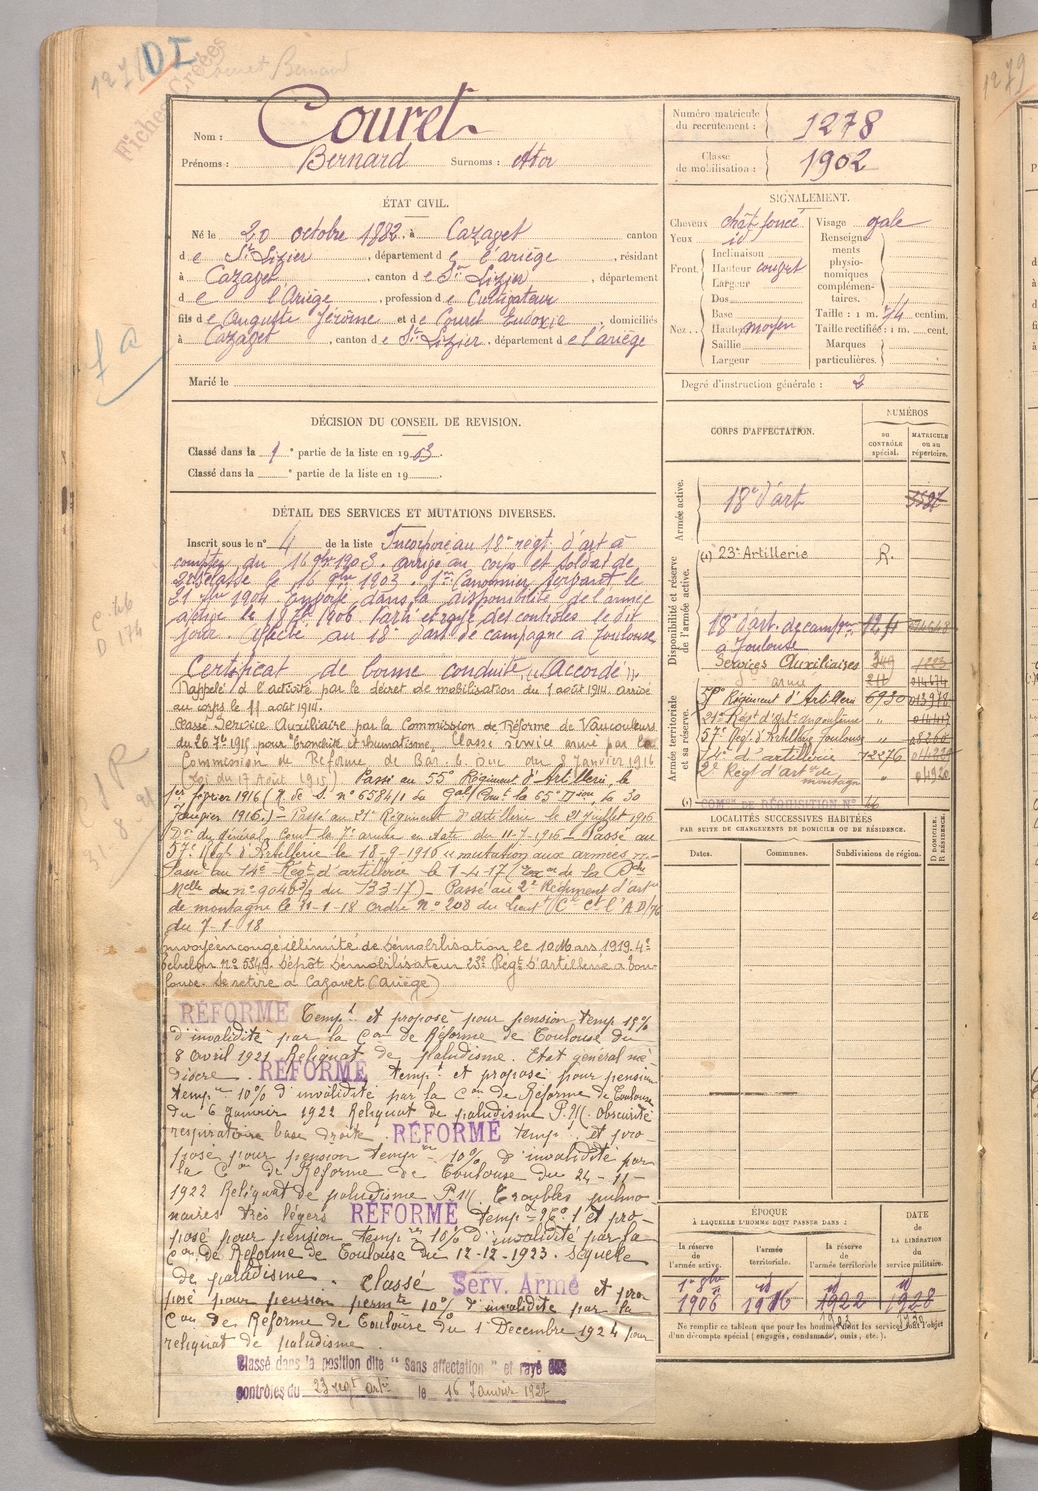 127 DI
Fiches Créées
Couret Bernard
Nom : Couret
Prénoms : Bernard Surnoms : Ator
Numéro matricule du recrutement : 1278
Classe de mobilisation : 1902
ÉTAT CIVIL.
Né le 20 octobre 1882, à Cazavet canton
de St Lizier, département de l'ariège, résidant
à Cazavet, canton de St Lizier, département
de l'Ariège, profession de Cultivateur
fils de Auguste Jérôme et de Couret Eudoxie, domiciliés
à Cazavet, canton de St Lizier, département de l'ariège
Marié le
SIGNALEMENT.
Cheveux chât foncé Visage ovale
Yeux id
Front. Inclinaison
Hauteur
Largeur
Nez. Dos
Base
Haute moyen
Saillie
Largeur
Renseignements physionomiques complémentaires.
Taille : 1 m. 74 centim.
Taille rectifiée : 1 m. cent.
Marques particulières.
Degré d'instruction générale : 2
DÉCISION DU CONSEIL DE REVISION.
Classé dans la 1e partie de la liste en 1903.
Classé dans la e partie de la liste en 19
CORPS D'AFFECTATION.
NUMÉROS
au CONTRÔLE spécial.
MATRICULE ou au répertoire.
Armée active.
18e d'art
Disponibilité et réserve de l'armée active.
(1) 23e Artillerie R.
18e d'art. de camp
à Toulouse
Services Auxiliaires 349 1223
Armée territoriale et sa réserve.
armé
Régiment d'Artillerie 6930
21e Régt d'art. angoulême "
57e Régt d'Artillerie Toulouse "
14e d'artillerie 12276
2e Régt d'art de montagne " 04920
(1) COMon DE RÉQUISITION No 46
DÉTAIL DES SERVICES ET MUTATIONS DIVERSES.
Inscrit sous le no 4 de la liste Incorporé au 18e régt d'art à
compter du 16 9bre 1903. arrivé au corps et soldat de
2e classe le 16 9bre 1903. 1er Canonnier servant le
21 1904. Envoyé dans la disponibilité de l'armée
active le 18 7bre 1906. Parti et rayé des contrôles le dit
jour. Affecté au 18e d'art de campagne à Toulouse
Certificat de bonne conduite "Accordé"
Rappelé à l'activité par le décret de mobilisation du 1 août 1914. arrivé
au corps le 11 août 1914.
Classé Service Auxiliaire par la Commission de Réforme de Vaucouleurs
du 26 7bre 1915 pour "bronchite et rhumatisme, Classé service armé par la
Commission de Réforme de Bar-l-Duc du 8 Janvier 1916
(Loi du 17 Août 1915). Passé au 55e Régiment d'Artillerie, le
1er février 1916 (N. de S. no 6584/1 du Gal Comt la 65e Dion, du 30
Janvier 1916.) - Passé au 21e Régiment d'Artillerie le 21 juillet 1916
Don du général Comt le 7e armée en date du 11-7-1916 - Passé au
57e Régt d'Artillerie le 18-9-1916 "mutation aux armées"
Passé au 14e Régt d'artillerie le 1-4-17 ( de la Don
Melle du no 9046 3/3 du 13-3-17) - Passé au 2e Régiment d'art
de montagne le 11-1-18 Ordre No 208 du Lieut Cel Ct l'A.D/76
du 7-1-18
Envoyé en congé illimité de Démobilisation le 10 Mars 1919. 4e
échelon no 5349. Dépôt Démobilisateur 23e Régt d'Artillerie à Toulouse. Se retire à Cazavet (Ariège)
RÉFORMÉ Tempt et proposé pour pension temp 15%
d'invalidité par la Con de Réforme de Toulouse du
8 Avril 1921 Reliquat de paludisme. Etat général médiocre.
RÉFORMÉ tempt et proposé pour pension
tempre 10% d'invalidité par la Con de Réforme de Toulouse
du 6 Janvier 1922 Reliquat de paludisme P.M. Obscurité
respiratoire base droite. RÉFORMÉ tempt et proposé
pour pension tempre 10% d'invalidité par
la Con de Réforme de Toulouse du 24-11-
1922 Reliquat de paludisme P.M. Troubles pulmonaires
très légers RÉFORMÉ temp et proposé
pour pension tempre 10% d'invalidité par la
Con de Réforme de Toulouse du 12-12-1923. Séquelle
de paludisme. Classé Serv. Armé et proposé
pour pension permte 10% d'invalidité par la
Con de Réforme de Toulouse du 1 Décembre 1924 pour
reliquat de paludisme.
Classé dans la position dite "Sans affectation" et rayé des
contrôles du 23 regt artie le 16 Janvier 1927
LOCALITÉS SUCCESSIVES HABITÉES
PAR SUITE DE CHANGEMENTS DE DOMICILE OU DE RÉSIDENCE.
Dates. Communes. Subdivisions de région. D DOMICILE. R RÉSIDENCE.
ÉPOQUE
À LAQUELLE L'HOMME DOIT PASSER DANS :
la réserve de l'armée active. l'armée territoriale. la réserve de l'armée territoriale
DATE DE LA LIBÉRATION du service militaire.
1er 9bre 1906 id 1916 id 1922 id 1928
Ne remplir ce tableau que pour les hommes dont les services font l'objet
d'un décompte spécial (engagés, condamnés, omis, etc.).
C. 46
D 174
1279